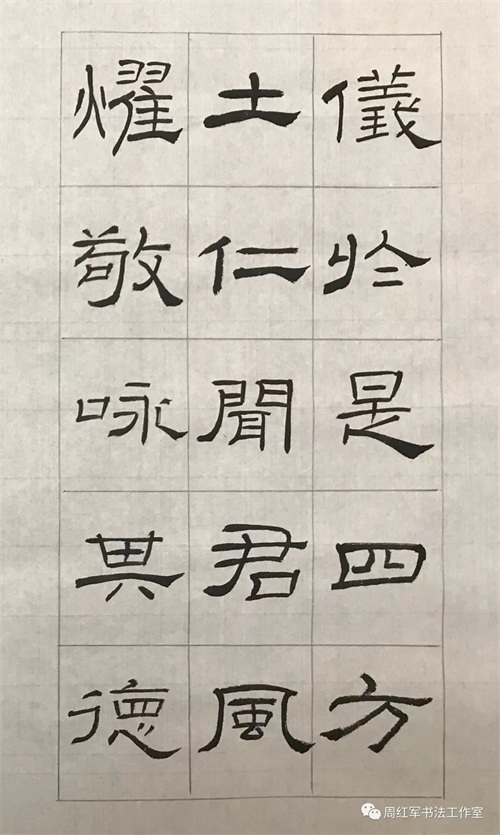 儀於是四方
土仁聞君風
燿敬咏其德
周红军书法工作室